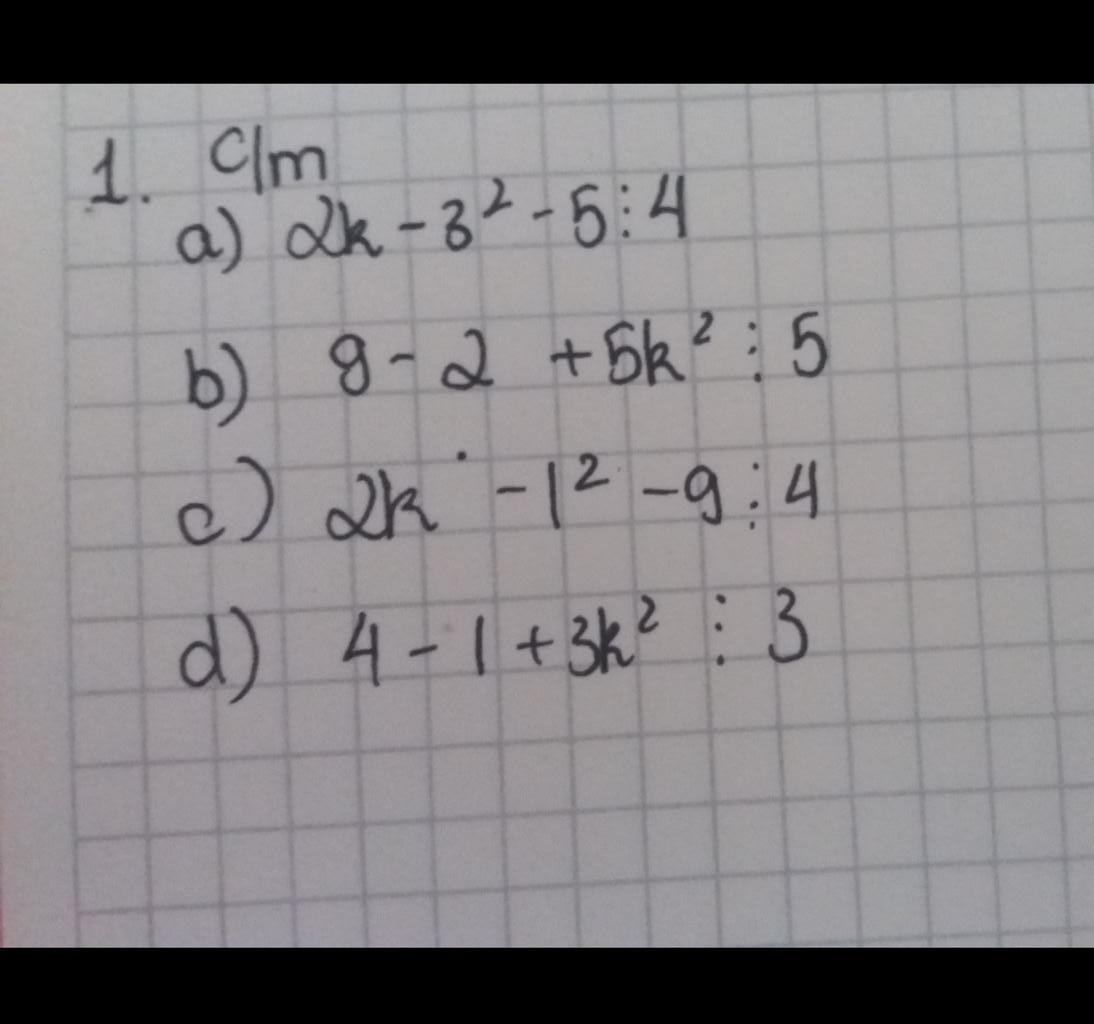 1. C/m
a) 2k - 3² - 5 ⋮ 4
b) 9 - 2 + 5k² ⋮ 5
c) 2k - 1² - 9 ⋮ 4
d) 4 - 1 + 3k² ⋮ 3